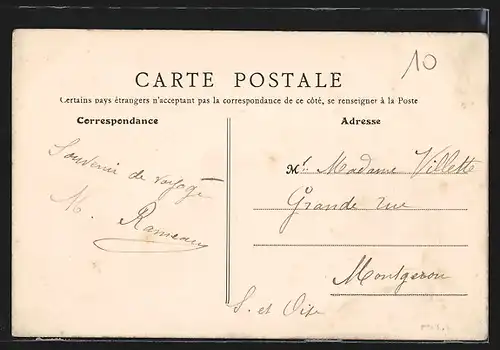 10
CARTE POSTALE
Certains pays étrangers n'acceptant pas la correspondance de ce côté, se renseigner à la Poste
Correspondance
Souvenir de voyage
M. Rameau
Adresse
M^r. Madame Villette
Grande rue
Montgeron
S. et Oise